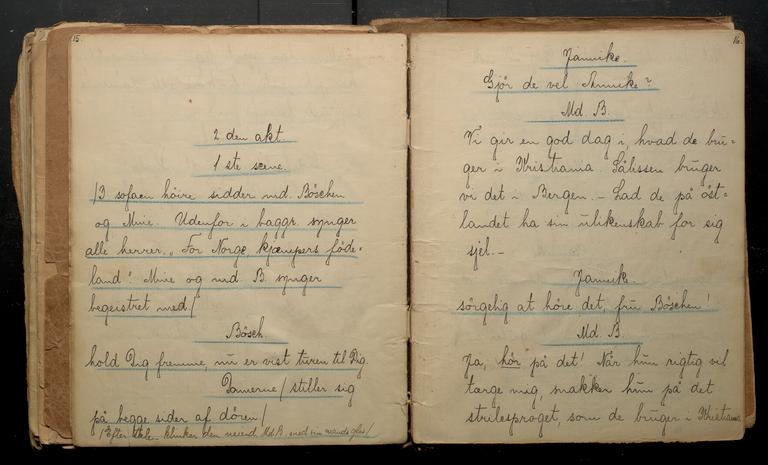 15.
2 den akt.
1 ste scene.
/I sofaen höire sidder md. Böschen
og Mine. Udenfor i baggr. synger
alle herrer. „For Norge, kjæmpers föde-
land". Mine og md B. synger
begeistret med/
Bösch.
hold Dig fremme, nu er vist turen til Dig.
Damerne / stiller sig
på begge sider af dören/
/Efter skål. klinker den Md. B. med sin mands glas/
16.
Jannike.
Gjör de vel Annike?
Md. B.
Vi gir en god dag i, hvad de bru-
ger i Kristiania. Sålissen bruger
vi det i Bergen. – Lad de på öst-
landet ha sin ulikenskab for sig
sjel. –
Jannike.
sörgelig at höre det, fru Böschen!
Md B.
Ja, hör på det! Når hun rigtig vil
tærge mig, snakker hun på det
strilesproget, som de bruger i Kristiania